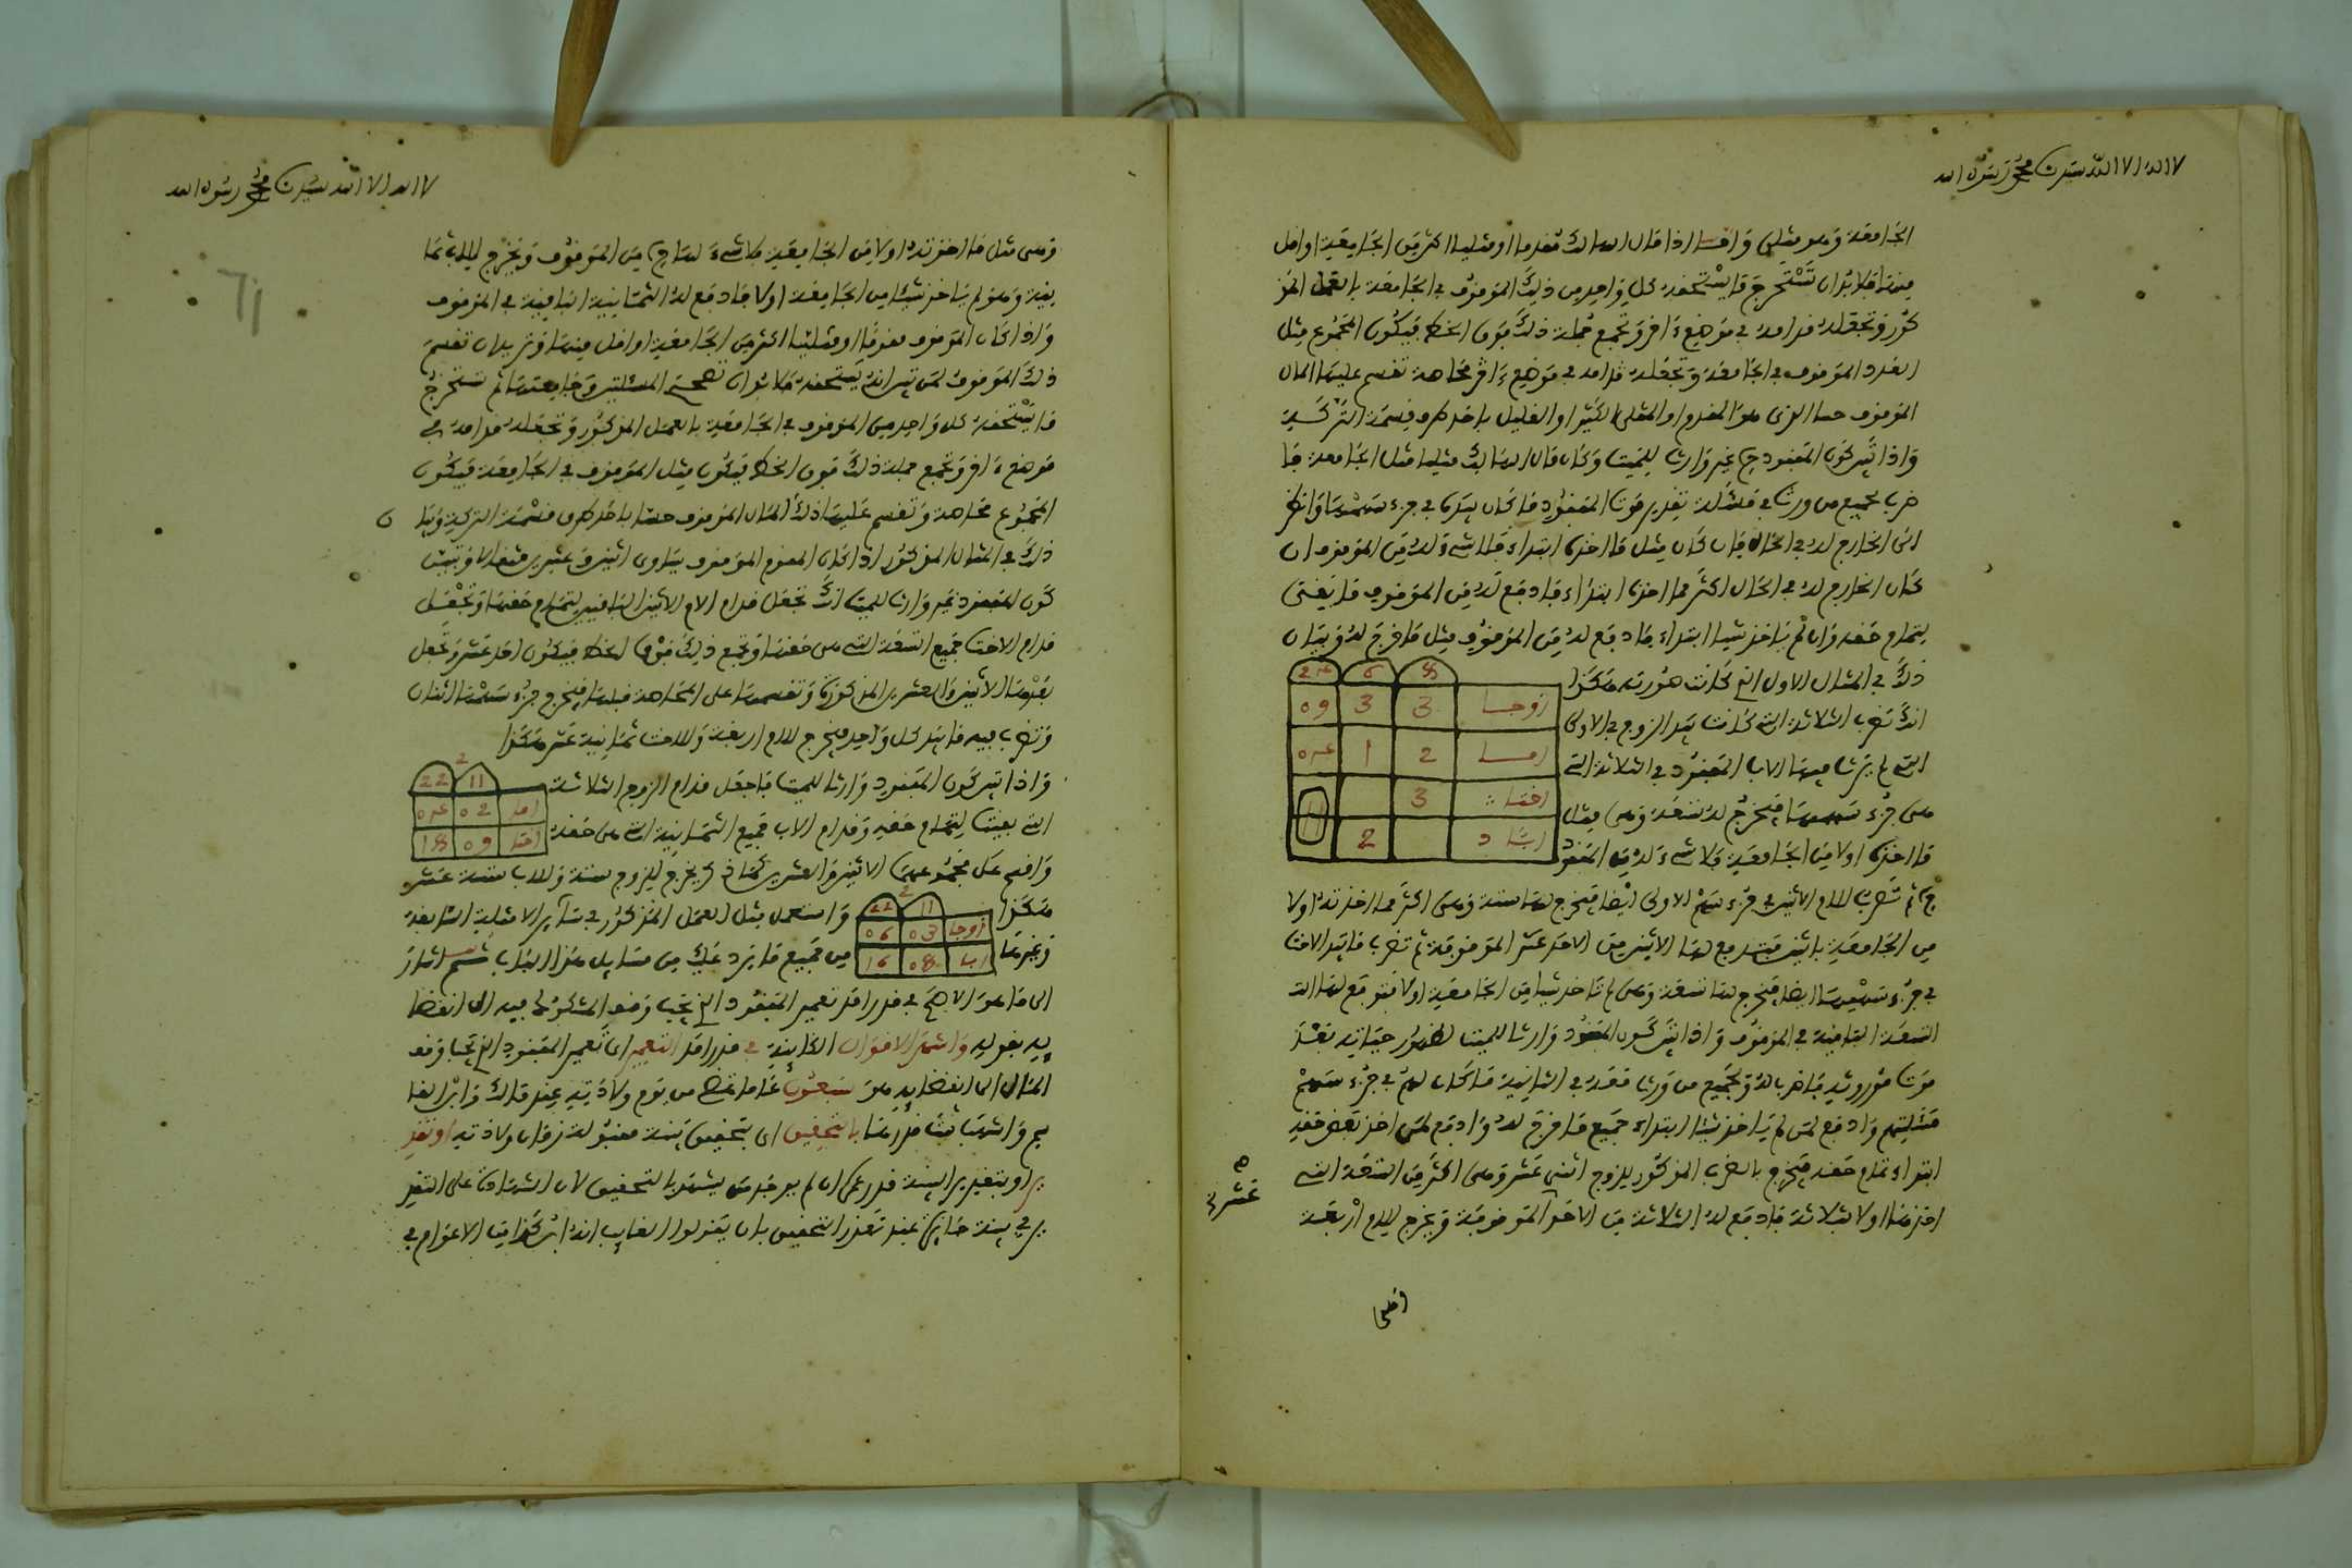 لا اله الا الله سيدنا محمد رسول الله
الجامعة وهو مثلين واما اذا قال الهالك معدما او مثليا اكثر من الجامعة او اقل
منها فلا بد ان تستخرج ما يستحقه كل واحد من ذلك الموقوف في الجامعة بالعمل المذ
كور وتجعله قدامه في موضع ءاخر وتجمع جملة ذلك فوق الخط فيكون المجموع مثل
العدد الموقوف في الجامعة وتجعله قدامه في موضع ءاخر محاصة تقسم عليها المال
الموقوف حسا الذي هو المقدوم او المثلي الكثير او القليل باحد طرق قسمة التركة
واذا تبين كون المفقود غير وارث للميت وكان مال الهالك مثليا مثل الجامعة فا
ضرب لجميع من ورث في مسألة تقدير موت المفقود ما كان بيده في جزء سهمها وانظر
الى الخارج له في الحال فان كان مثل ما اخذه ابتداء فلا شيء له من الموقوف وان
كان الخارج له في الحال اكثر مما اخذه ابتداء فادفع له من الموقوف ما بقى
لتمام حقه وان لم ياخذ شيئا ابتداء فادفع له من الموقوف مثل ما خرج له وبيان
ذلك في المثال الاول الذي كانت صورته هكذا
انك تضرب الثلاثة التي كانت بيد الزوج في الاولى
التي لم يرث فيها الاب المفقود في الثلاثة التي
هي جزء سهمها فيخرج له تسعة وهي مثل
ما اخذه اولا من الجامعة فلا شيء له من المفقو
8 6 24
زوجا 3 3 09
اما 2 1 04
اختا 3
ابا 2
11
ثم تضرب للام الاثنين في جزء سهم الاولى ايضا فيخرج لها ستة وهي اكثر مما اخذته اولا
من الجامعة باثنين فتدفع لها الاثنين من الاحد عشر الموقوفة ثم تضرب ما بيد الاخت
في جزء سهمها ايضا فيخرج لها تسعة وهي لم تاخذ شيئا من الجامعة اولا فتدفع لها
التسعة الباقية في الموقوف واذا تبين كون المفقود وارثا للميت لظهور حياته بعد
موت مورثه فاضرب له ولجميع من ورث معه في الثانية ما كان لهم في جزء سهم
مسئلتهم وادفع لمن لم ياخذ شيئا ابتداء جميع ما خرج له وادفع لمن اخذ بعض حقه
ابتداء تمام حقه فيخرج بالضرب المذكور للزوج اثني عشر وهي اكثر من التسعة التي
اخذها اولا بثلاثة فادفع له الثلاثة من الاحد الموقوفة ويخرج للام اربعة
عشر
لا اله الا الله سيدنا محمد رسول الله
61
وهي مثل ما اخذته اولا من الجامعة فلا شيء لها من الموقوف ويخرج للاب ثما
نية وهو لم ياخذ شيئا من الجامعة اولا فادفع له الثمانية الباقية في الموقوف
واذا كان الموقوف مقوما او مثليا اكثر من الجامعة او اقل منها وتريد ان تقسم
ذلك الموقوف لمن تبين انه يستحقه فلا بد ان تصحح المسئلتين وجامعتهما ثم تستخرج
ما يستحقه كل واحد من الموقوف في الجامعة بالعمل المذكور وتجعله قدامه في
موضع ءاخر وتجمع جملة ذلك فوق الخط فيكون مثل الموقوف في الجامعة فيكون
المجموع محاصة وتقسم عليها ذلك المال الموقوف حسا باحد طرق قسمة التركة وبيا ن
ذلك في المثال المذكور اذا كان المقوم الموقوف يساوي اثنين وعشرين مثقالا وتبين
كون المفقود غير وارث للميت انك تجعل قدام الام الاثنين الباقيين لتمام حقها وتجعل
قدام الاخت جميع التسعة التي هي حقها وتجمع ذلك فوق الخط فيكون احد عشر وتجعل
بعدها الاثنين والعشرين المذكورة وتقسمها على المحاصة قبلها فيخرج جزء سهمها اثنان
وتضرب فيه ما بيد كل واحد فيخرج للام اربعة وللاخت ثمانية عشر هكذا
2
11 22
اما 02 04
اختا 09 18
واذا تبين كون المفقود وارثا للميت فاجعل قدام الزوج الثلاثة
التي بقيت لتمام حقه وقدام الاب جميع الثمانية التي هي حقه
واقسم على مجموعهما الاثنين والعشرين كما ذكر يخرج للزوج ستة وللاب ستة عشر
هكذا
2
11 22
زوجا 03 06
ابا 08 16
واستعمل مثل العمل المذكور في سائر الامثلة السابقة
وغيرها من جميع ما يرد عليك من مسايل هذا الباب ثم اشار
الى ما هو الاصح في قدر امد تعمير المفقود الذي يجب وقف المشكوك فيه الى انقضا
يه بقوله واشهر الاقوال الكاينة في قدر امد التعمير اي تعمير المفقود الذي يجب وقف
المال الى انقضايه هو سبعون عاما تمضي من يوم ولادته عند مالك وابن القا
سم واثبت قدرها بالتحقيق اي بتحقيق بينة مقبولة زمان ولادته او تقد
ير او بتقدير البينة قدر عمره ان لم يوجد من يشهد بالتحقيق لان الشهادة على التقد
ير في بينة جايزة عند تعذر التحقيق بان يقولوا الغايب انه ابن كذا من الاعوام في